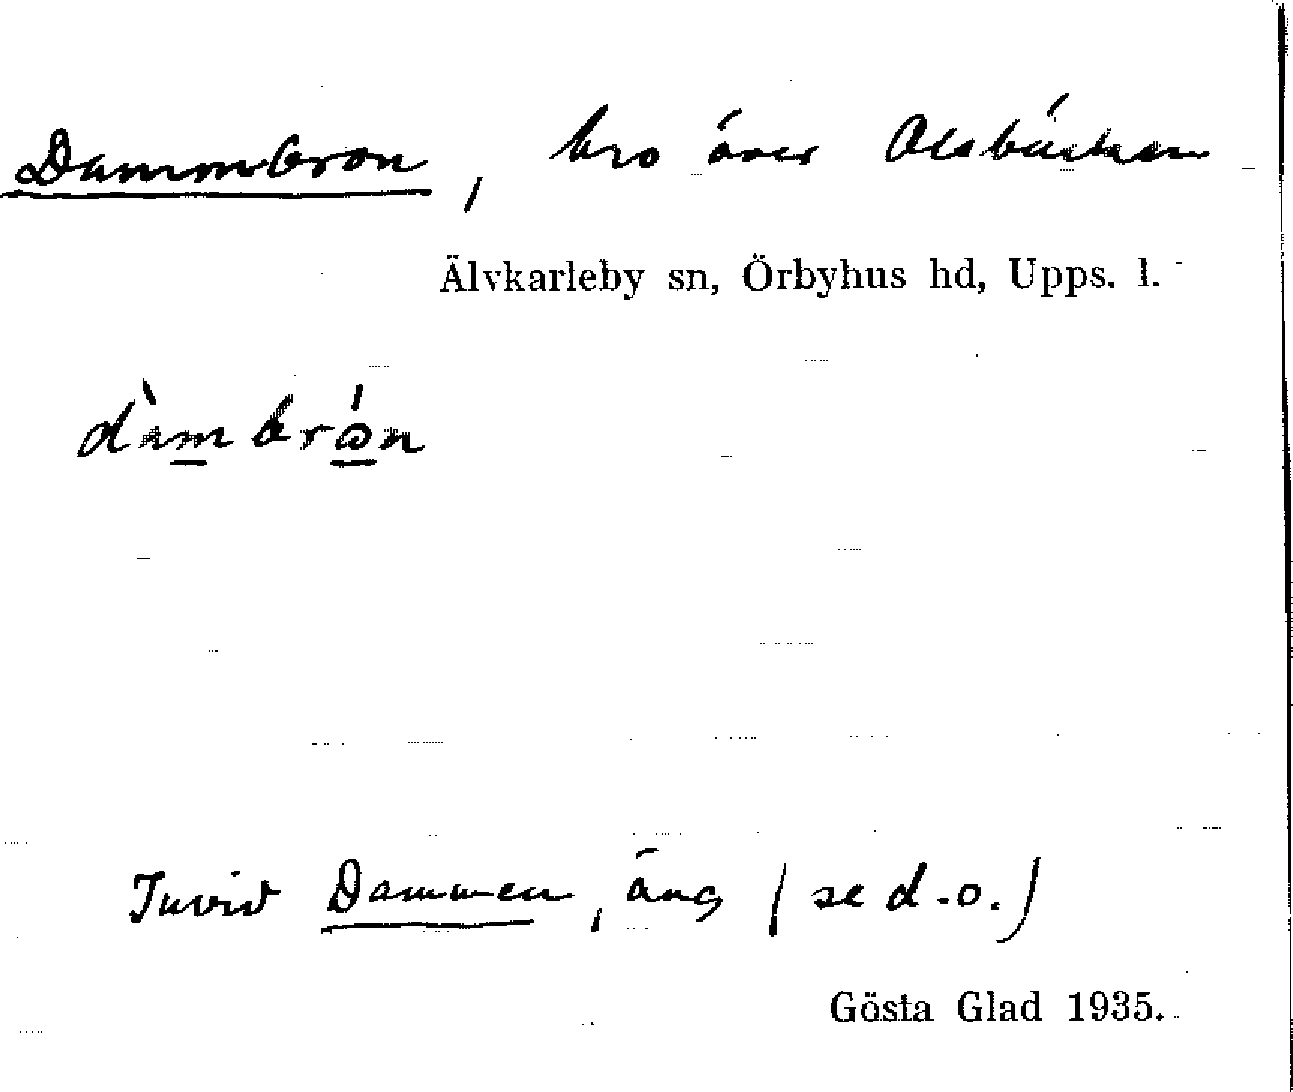 Dammbron, bro över Olsbäcken
Älvkarleby sn, Örbyhus hd, Upps. l.
dàmbrón
Invid Dammen, äng (se d.o.)
Gösta Glad 1935.